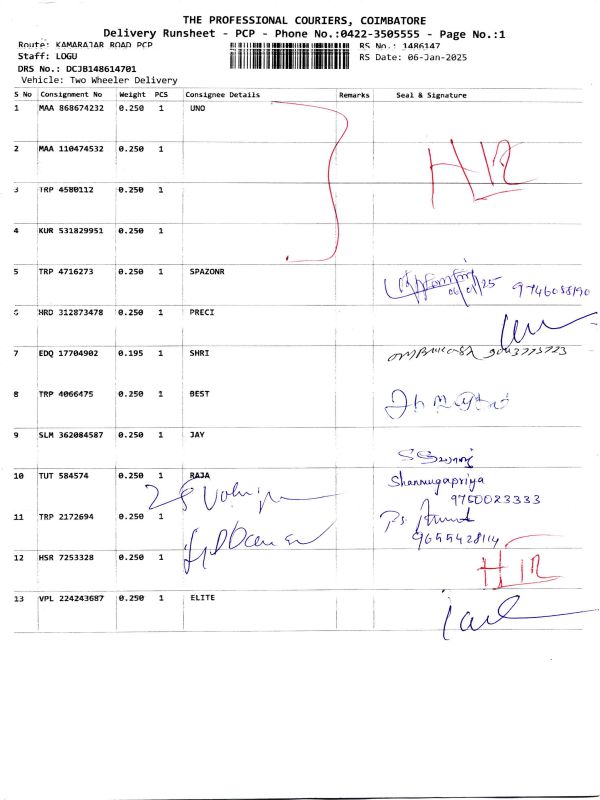 THE PROFESSIONAL COURIERS, COIMBATORE
Delivery Runsheet - PCP - Phone No.:0422-3505555 - Page No.:1
Route: KAMARAJAR ROAD PCP
RS No.: 1486147
Staff: LOGU
RS Date: 06-Jan-2025
DRS No.: DCJB148614701
Vehicle: Two Wheeler Delivery
S No Consignment No Weight PCS Consignee Details Remarks Seal & Signature
1 MAA 868674232 0.250 1 UNO
2 MAA 110474532 0.250 1
3 TRP 4580112 0.250 1
4 KUR 531829951 0.250 1
5 TRP 4716273 0.250 1 SPAZONR
6 HRD 312873478 0.250 1 PRECI
7 EDQ 17704902 0.195 1 SHRI
8 TRP 4066475 0.250 1 BEST
9 SLM 362084587 0.250 1 JAY
10 TUT 584574 0.250 1 RAJA Shanmugapriya
9750023333
11 TRP 2172694 0.250 1
9655428114
12 HSR 7253328 0.250 1
13 VPL 224243687 0.250 1 ELITE